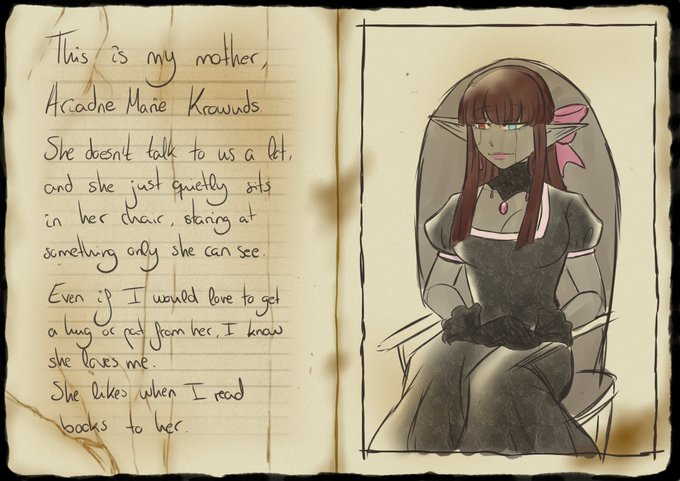 This is my mother,
Ariadne Marie Krowuds.
She doesn't talk to us a lot,
and she just quietly sits
in her chair, staring at
something only she can see.
Even if I would love to get
a hug or pat from her, I know
she loves me.
She likes when I read
books to her.